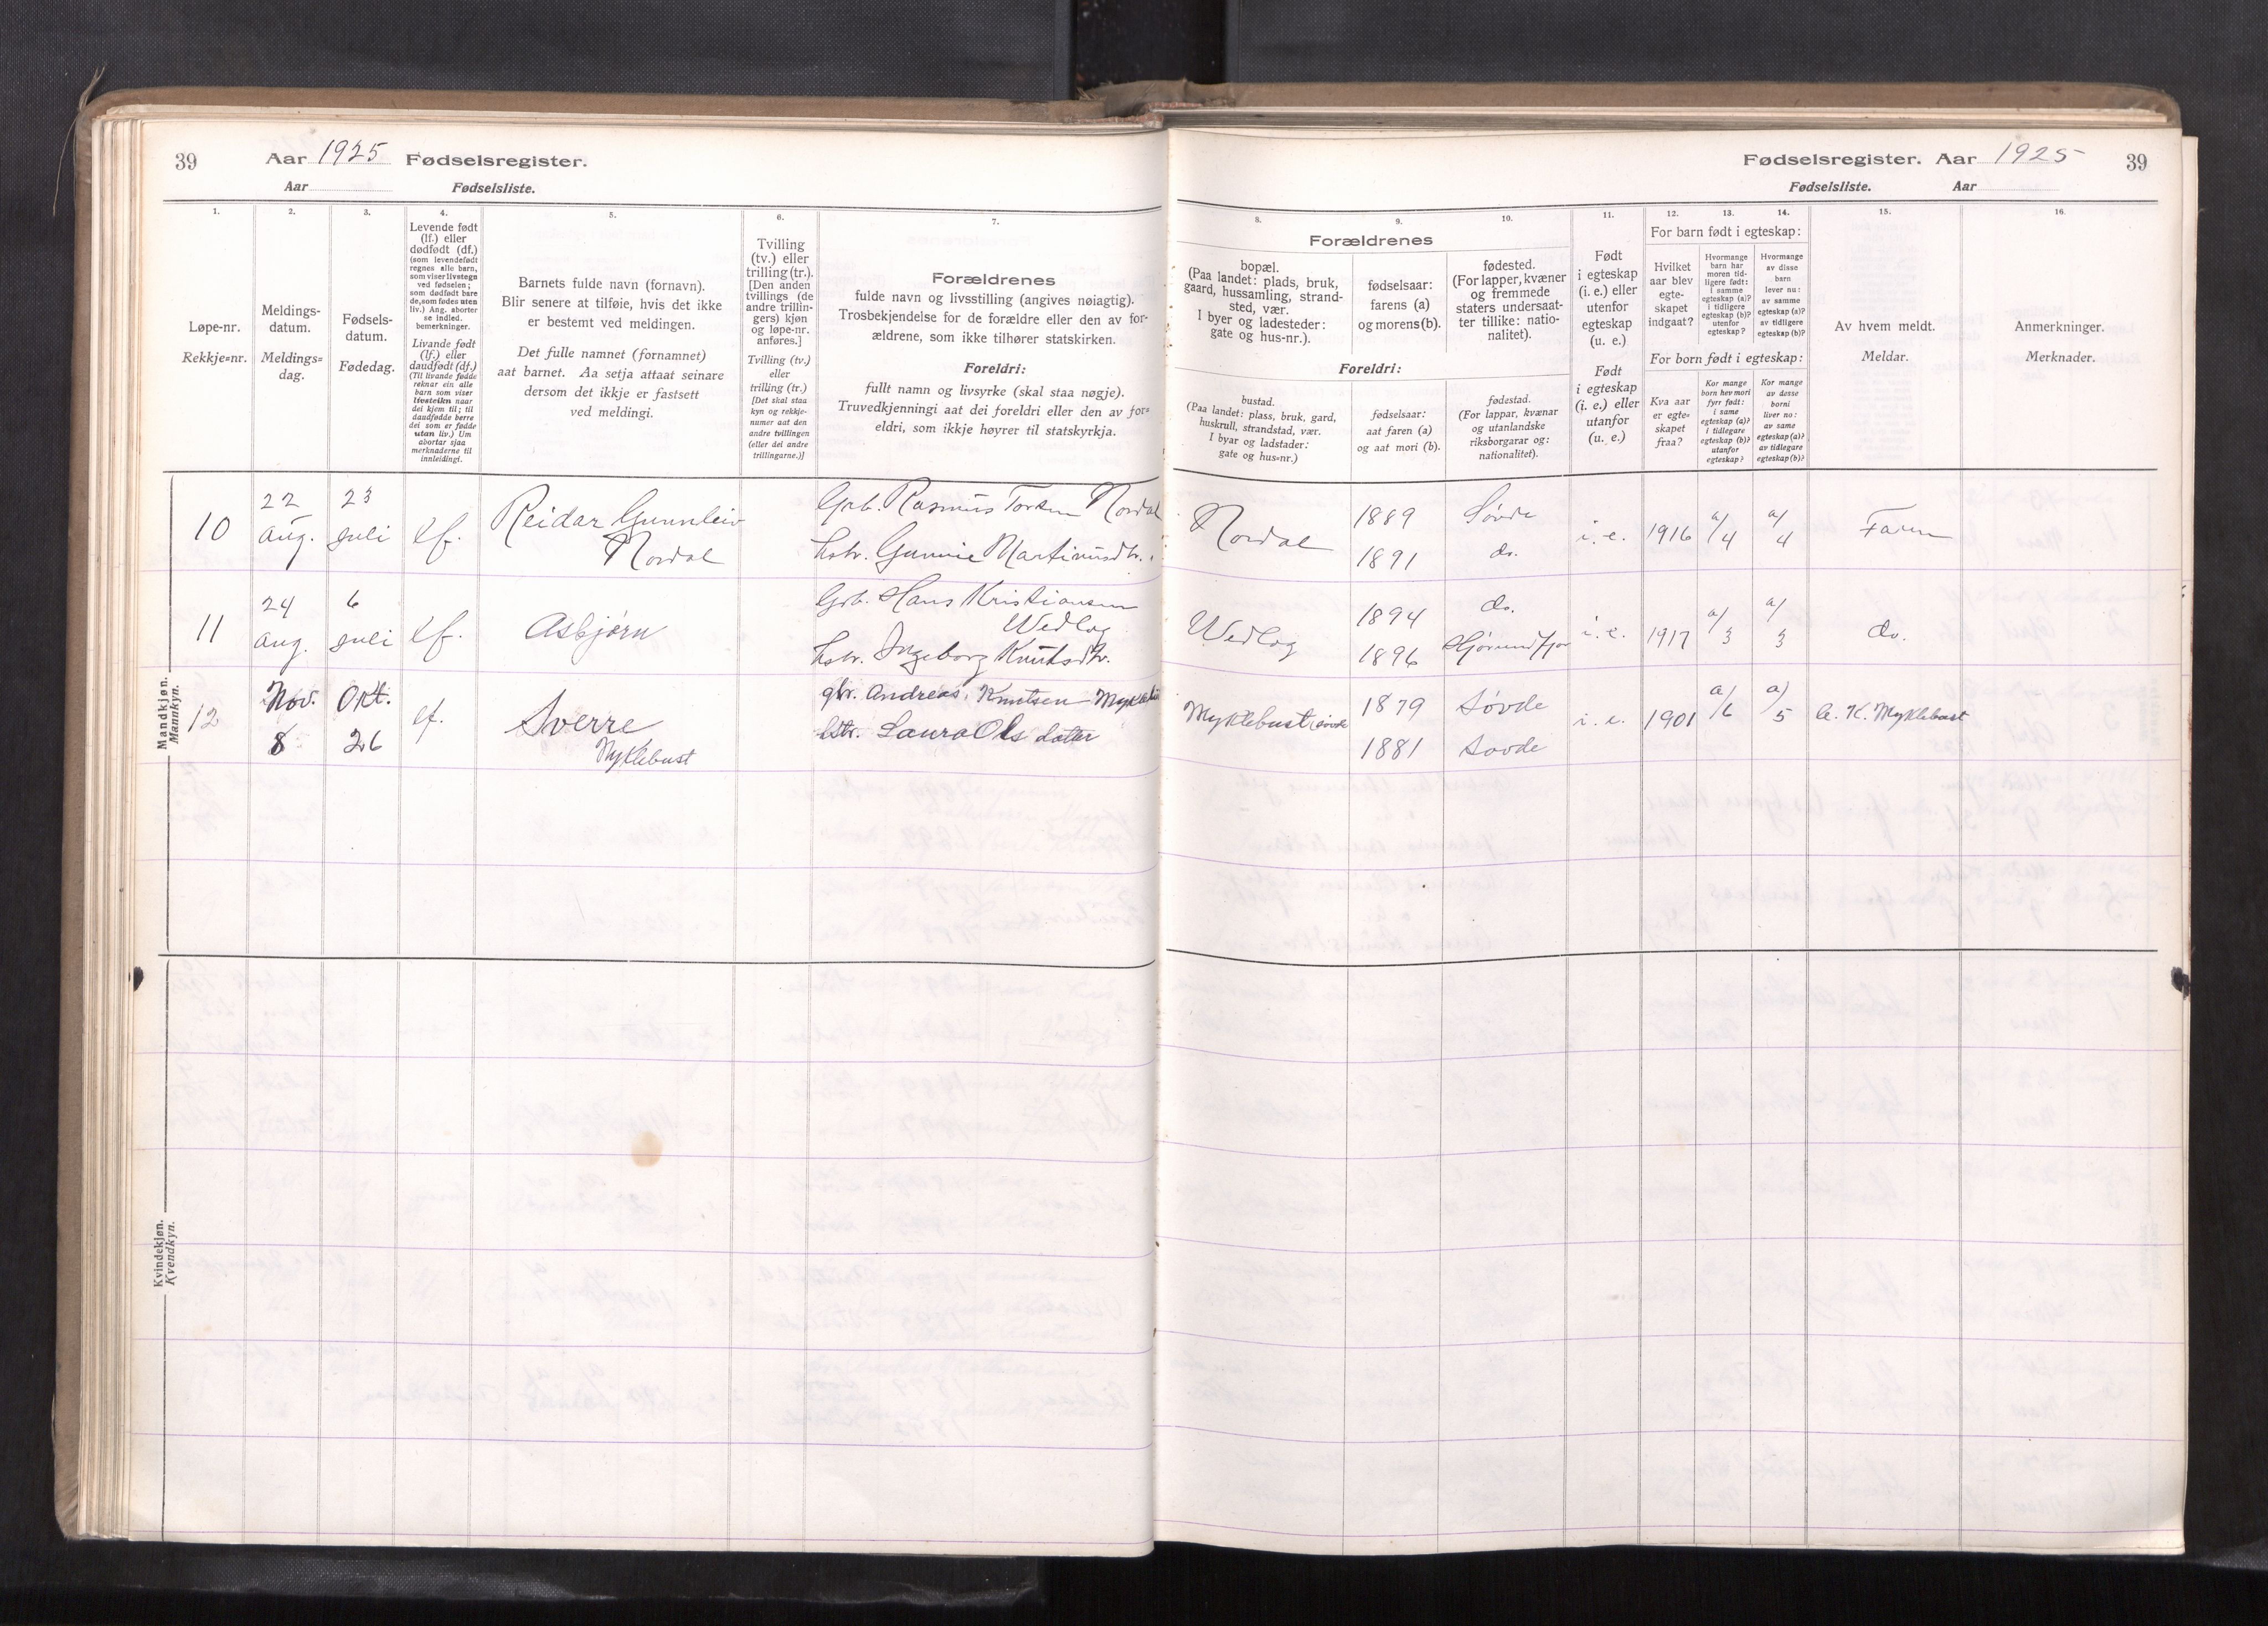 39 Aar 1925 Fødselsregister.
Aar Fødselsliste.
1. 2. 3. 4. 5. 6. 7.
Løpe-nr.
Rekkje=nr.
Meldings-
datum.
Meldings=
dag.
Fødsels-
datum.
Fødedag.
Levende født
(lf.) eller
dødfødt (df.)
(som levendefødt
regnes alle barn,
som viser livstegn
ved fødselen;
som dødfødt bare
de, som fødes uten
liv.) Ang. aborter
se indled.
bemerkninger.
Livande født
(lf.) eller
daudfødt (df.)
(Til livande fødde
reknar ein alle
barn som viser
livsteikn naar
dei kjem til; til
daudfødde berre
dei som er fødde
utan liv.) Um
abortar sjaa
merknaderne til
innleidingi.
Barnets fulde navn (fornavn).
Blir senere at tilføie, hvis det ikke
er bestemt ved meldingen.
Det fulle namnet (fornamnet)
aat barnet. Aa setja attaat seinare
dersom det ikkje er fastsett
ved meldingi.
Tvilling
(tv.) eller
trilling (tr.).
[Den anden
tvillings (de
andre trillin-
gers) kjøn
og løpe-nr.
anføres.]
Tvilling (tv.)
eller
trilling (tr.)
[Det skal staa
kyn og rekkje-
numer aat den
andre tvillingen
(eller dei andre
trillingarne.)]
Forældrenes
fulde navn og livsstilling (angives nøiagtig).
Trosbekjendelse for de forældre eller den av for-
ældrene, som ikke tilhører statskirken.
Foreldri:
fullt namn og livsyrke (skal staa nøgje).
Truvedkjenningi aat dei foreldri eller den av for=
eldri, som ikkje høyrer til statskyrkja.
Mandkjøn.
Mannkyn.
10
22
Aug.
23
Juli
lf.
Reidar Gunnleiv
Nordal
Grb. Rasmus Torsen Nordal
hstr. Gunnie Martinusdtr.
11
24
Aug.
6
Juli
lf.
Asbjørn
Grb. Hans Kristiansen
Wedlog
hstr. Ingeborg Knutsdtr.
12
Nov.
8
Okt.
26
lf.
Sverre
Myklebust
gbr. Andreas Knutsen Myklebust
hstr. Laura Ols datter
Kvindekjøn.
Kvendkyn.
Fødselsregister. Aar 1925 39
Fødselsliste. Aar
8. 9. 10. 11. 12. 13. 14. 15. 16.
Forældrenes
bopæl.
(Paa landet: plads, bruk,
gaard, hussamling, strand-
sted, vær.
I byer og ladesteder:
gate og hus-nr.).
fødselsaar:
farens (a)
og morens (b).
fødested.
(For lapper, kvæner
og fremmede
staters undersaat-
ter tillike: natio-
nalitet).
Foreldri:
bustad.
(Paa landet: plass, bruk, gard,
huskrull, strandstad, vær.
I byar og ladstader:
gate og hus=nr.)
fødselsaar:
aat faren (a)
og aat mori (b).
fødestad.
(For lappar, kvænar
og utanlandske
riksborgarar og:
nationalitet).
Født
i egteskap
(i. e.) eller
utenfor
egteskap
(u. e.)
Født
i egteskap
(i. e.) eller
utanfor
(u. e.)
For barn født i egteskap:
Hvilket
aar blev
egte-
skapet
indgaat?
Hvormange
barn har
moren tid-
ligere født:
i samme
egteskap (a)?
i tidligere
egteskap (b)?
utenfor
egteskap?
Hvormange
av disse
barn
lever nu:
av samme
egteskap (a)?
av tidligere
egteskap (b)?
For born født i egteskap:
Kva aar
er egte=
skapet
fraa?
Kor mange
born hev mori
fyrr født:
i same
egteskap (a)?
i tidlegare
egteskap (b)?
utanfor
egteskap?
Kor mange
av desse
borni
liver no:
av same
egteskap (a)?
av tidlegare
egteskap (b)?
Av hvem meldt.
Meldar.
Anmerkninger.
Merknader.
Nordal
1889 Søvde
1891 do.
i. e. 1916 a/4 a/4 Faren
Wedlog
1894 do.
1896 Hjørundfjor
i. e. 1917 a/3 a/3 do.
Myklebust Søvde
1879 Søvde
1881 Søvde
i. e. 1901 a/6 a/5 A. K. Myklebust